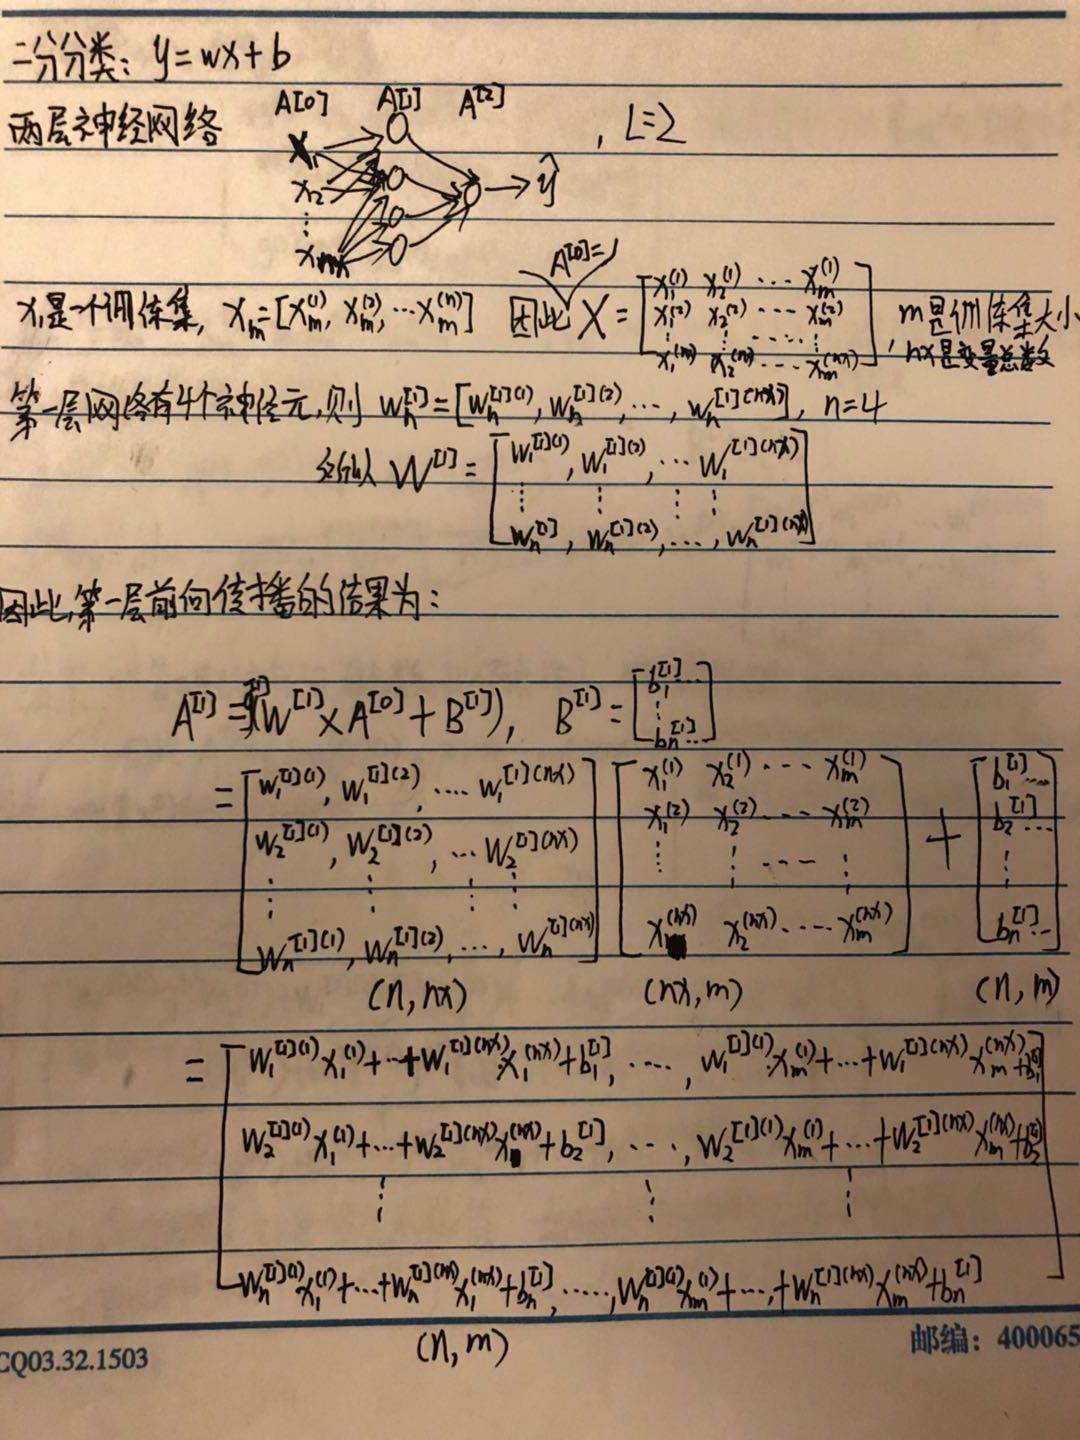 二分分类: y=wx+b
两层神经网络 A[0] A[1] A[2] , L=2
x₁ x₂ ⋮ → ŷ
A[0]=
x₁是一个训练集, xₘ=[xₘ⁽¹⁾, xₘ⁽²⁾, ⋯xₘ⁽ⁿ⁾] 因此 X = [x₁⁽¹⁾ x₂⁽¹⁾ ⋯ xₘ⁽¹⁾ m是训练集大小
x₁⁽²⁾ x₂⁽²⁾ ⋯ xₘ⁽²⁾
⋮ ⋯⋯ ⋮ , nx是变量总数
x₁⁽ⁿ⁾ x₂⁽ⁿ⁾ ⋯ xₘ⁽ⁿˣ⁾]
第一层网络有4个神经元,则 wₙ[1]=[wₙ[1](1), wₙ[1](2), ⋯, wₙ[1](nx)], n=4
所以 W[1] = [w₁[1](1), w₁[1](2), ⋯ w₁[1](nx)
⋮ ⋮ ⋮ ⋮
wₙ[1], wₙ[1](2), ⋯, wₙ[1](nx)]
因此,第一层前向传播的结果为:
A[1] = (W[1] × A[0] + B[1]), B[1] = [b₁[1]⋯
⋮
bₙ[1]⋯]
= [w₁[1](1), w₁[1](2), ⋯ w₁[1](nx) [x₁⁽¹⁾ x₂⁽¹⁾ ⋯ xₘ⁽¹⁾ + [b₁[1]⋯
w₂[1](1), w₂[1](2), ⋯ w₂[1](nx) x₁⁽²⁾ x₂⁽²⁾ ⋯ xₘ⁽²⁾ b₂[1]⋯
⋮ ⋮ ⋮ ⋮ ⋮ ⋮ ⋯ ⋮ ⋮
wₙ[1](1), wₙ[1](2), ⋯, wₙ[1](nx)] x₁⁽ⁿˣ⁾ x₂⁽ⁿˣ⁾ ⋯ xₘ⁽ⁿˣ⁾] bₙ[1]⋯]
(n, nx) (nx, m) (n, m)
= [w₁[1](1)x₁⁽¹⁾+⋯+w₁[1](nx)x₁⁽ⁿˣ⁾+b₁[1], ⋯, w₁[1](1)xₘ⁽¹⁾+⋯+w₁[1](nx)xₘ⁽ⁿˣ⁾+b₁[1]
w₂[1](1)x₁⁽¹⁾+⋯+w₂[1](nx)x⁽ⁿˣ⁾+b₂[1], ⋯, w₂[1](1)xₘ⁽¹⁾+⋯+w₂[1](nx)xₘ⁽ⁿˣ⁾+b₂[1]
⋮ ⋮ ⋮
wₙ[1](1)x₁⁽¹⁾+⋯+wₙ[1](nx)x₁⁽ⁿˣ⁾+bₙ[1], ⋯⋯, wₙ[1](1)xₘ⁽¹⁾+⋯,+wₙ[1](nx)xₘ⁽ⁿˣ⁾+bₙ[1]]
(n, m)
CQ03.32.1503 邮编：400065